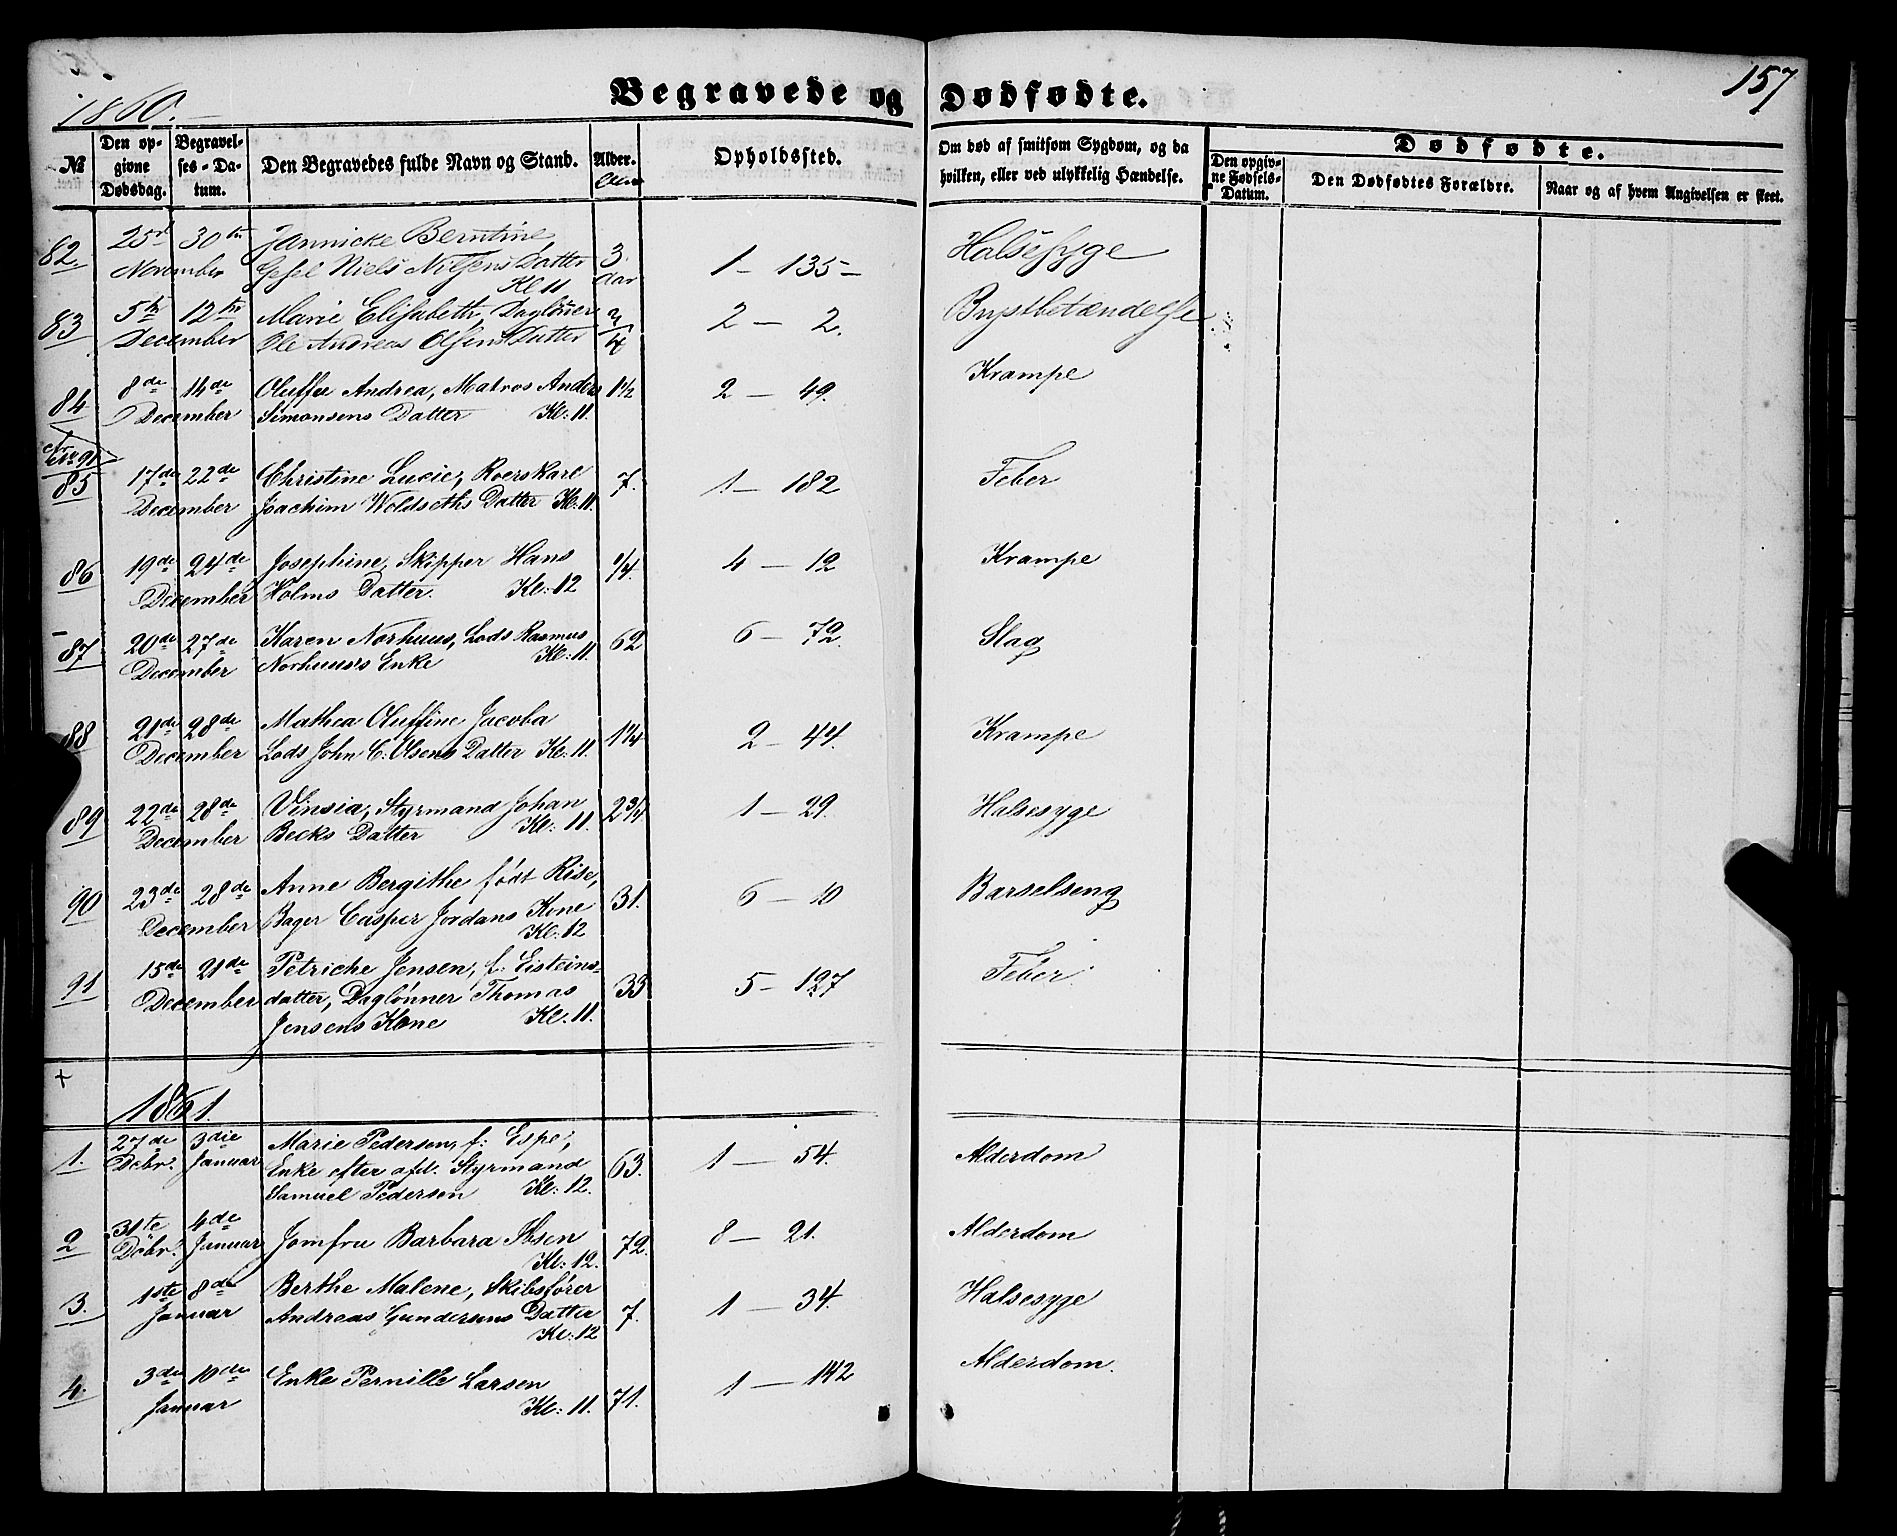 157
1860.
Begravede og Dødfødte.
№ | Den opgivne Dødsdag. | Begravelses-Datum. | Den Begravedes fulde Navn og Stand. | Alder. | Opholdssted. | Om død af smitsom Sygdom, og da hvilken, eller ved ulykkelig Hændelse. | Dødfødte. | Den opgivne Fødsels-Datum. | Den Dødfødtes Forældre. | Naar og af hvem Angivelsen er skeet.
82. 25d 30te Jannicke Berntine 3 1 - 135 - Halsesyge
November Gesel Niels Nilsens Datter Aar
Kl 11
83 5te 12te Marie Elisabeth, Daglönner 3/4 2 - 2. Brystbetændelse
December Ole Andreas Olsens Datter
84 8de 14de Oluffa Andrea, Matros Anders 1 1/2 2 - 49. Krampe
December Simonsens Datter Kl: 11.
No 91
85 17de 22de Christine Lucie, Roerskarl 7. 1 - 182 Feber
December Joachim Woldseths Datter Kl: 11.
86 19de 24de Josephine, Skipper Hans 1/4. 4 - 12 Krampe
December Holms Datter. Kl: 12
87 20de 27de Karen Norhuus, Lods Rasmus 62 6 - 72. Slag
December Norhuus's Enke Kl: 11.
88 21de 28de Mathea Oluffine Jacoba 1 1/4 2 - 44. Krampe
December Lods John C. Olsens Datter Kl: 11.
89 22de 28de Vinsia, Styrmand Johan 2 3/4 1 - 29. Halsesyge
December Becks Datter Kl: 11.
90 23de 28de Anne Bergithe født Rise, 31. 6 - 10 Barselseng
December Bager Casper Jordans Kone
Kl: 12
91 15de 21de Petriche Jensen, f. Eisteins- 33 5 - 127 Feber.
December datter, Daglönner Thomas
Jensens Kone Kl: 11.
+
1861.
1. 27de 3die Marie Pedersen, f: Espe, 63. 1 - 54. Alderdom
Dcbr. Januar Enke efter afd. Styrmand
Samuel Pedersen Kl: 12.
2 31te 4de Jomfru Barbara Ibsen 72. 8 - 21. Alderdom
Dcbr. Januar Kl: 12.
3. 1ste 8de Berthe Malene, Skibsfører 7. 1 - 34. Halsesyge
Januar Andreas Gundersens Datter
Kl: 12
4. 3de 10de Enke Pernille Larsen 71. 1 - 142 Alderdom.
Januar Kl: 11.